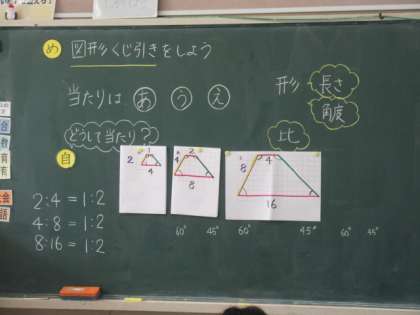 め 図形くじ引きをしよう
当たりは あ う え
形 長さ
角度
どうして当たり?
比
自
2:4=1:2
4:8=1:2
8:16=1:2
1
2
4
2
4
8
4
8
16
60° 45° 60° 45° 60° 45°